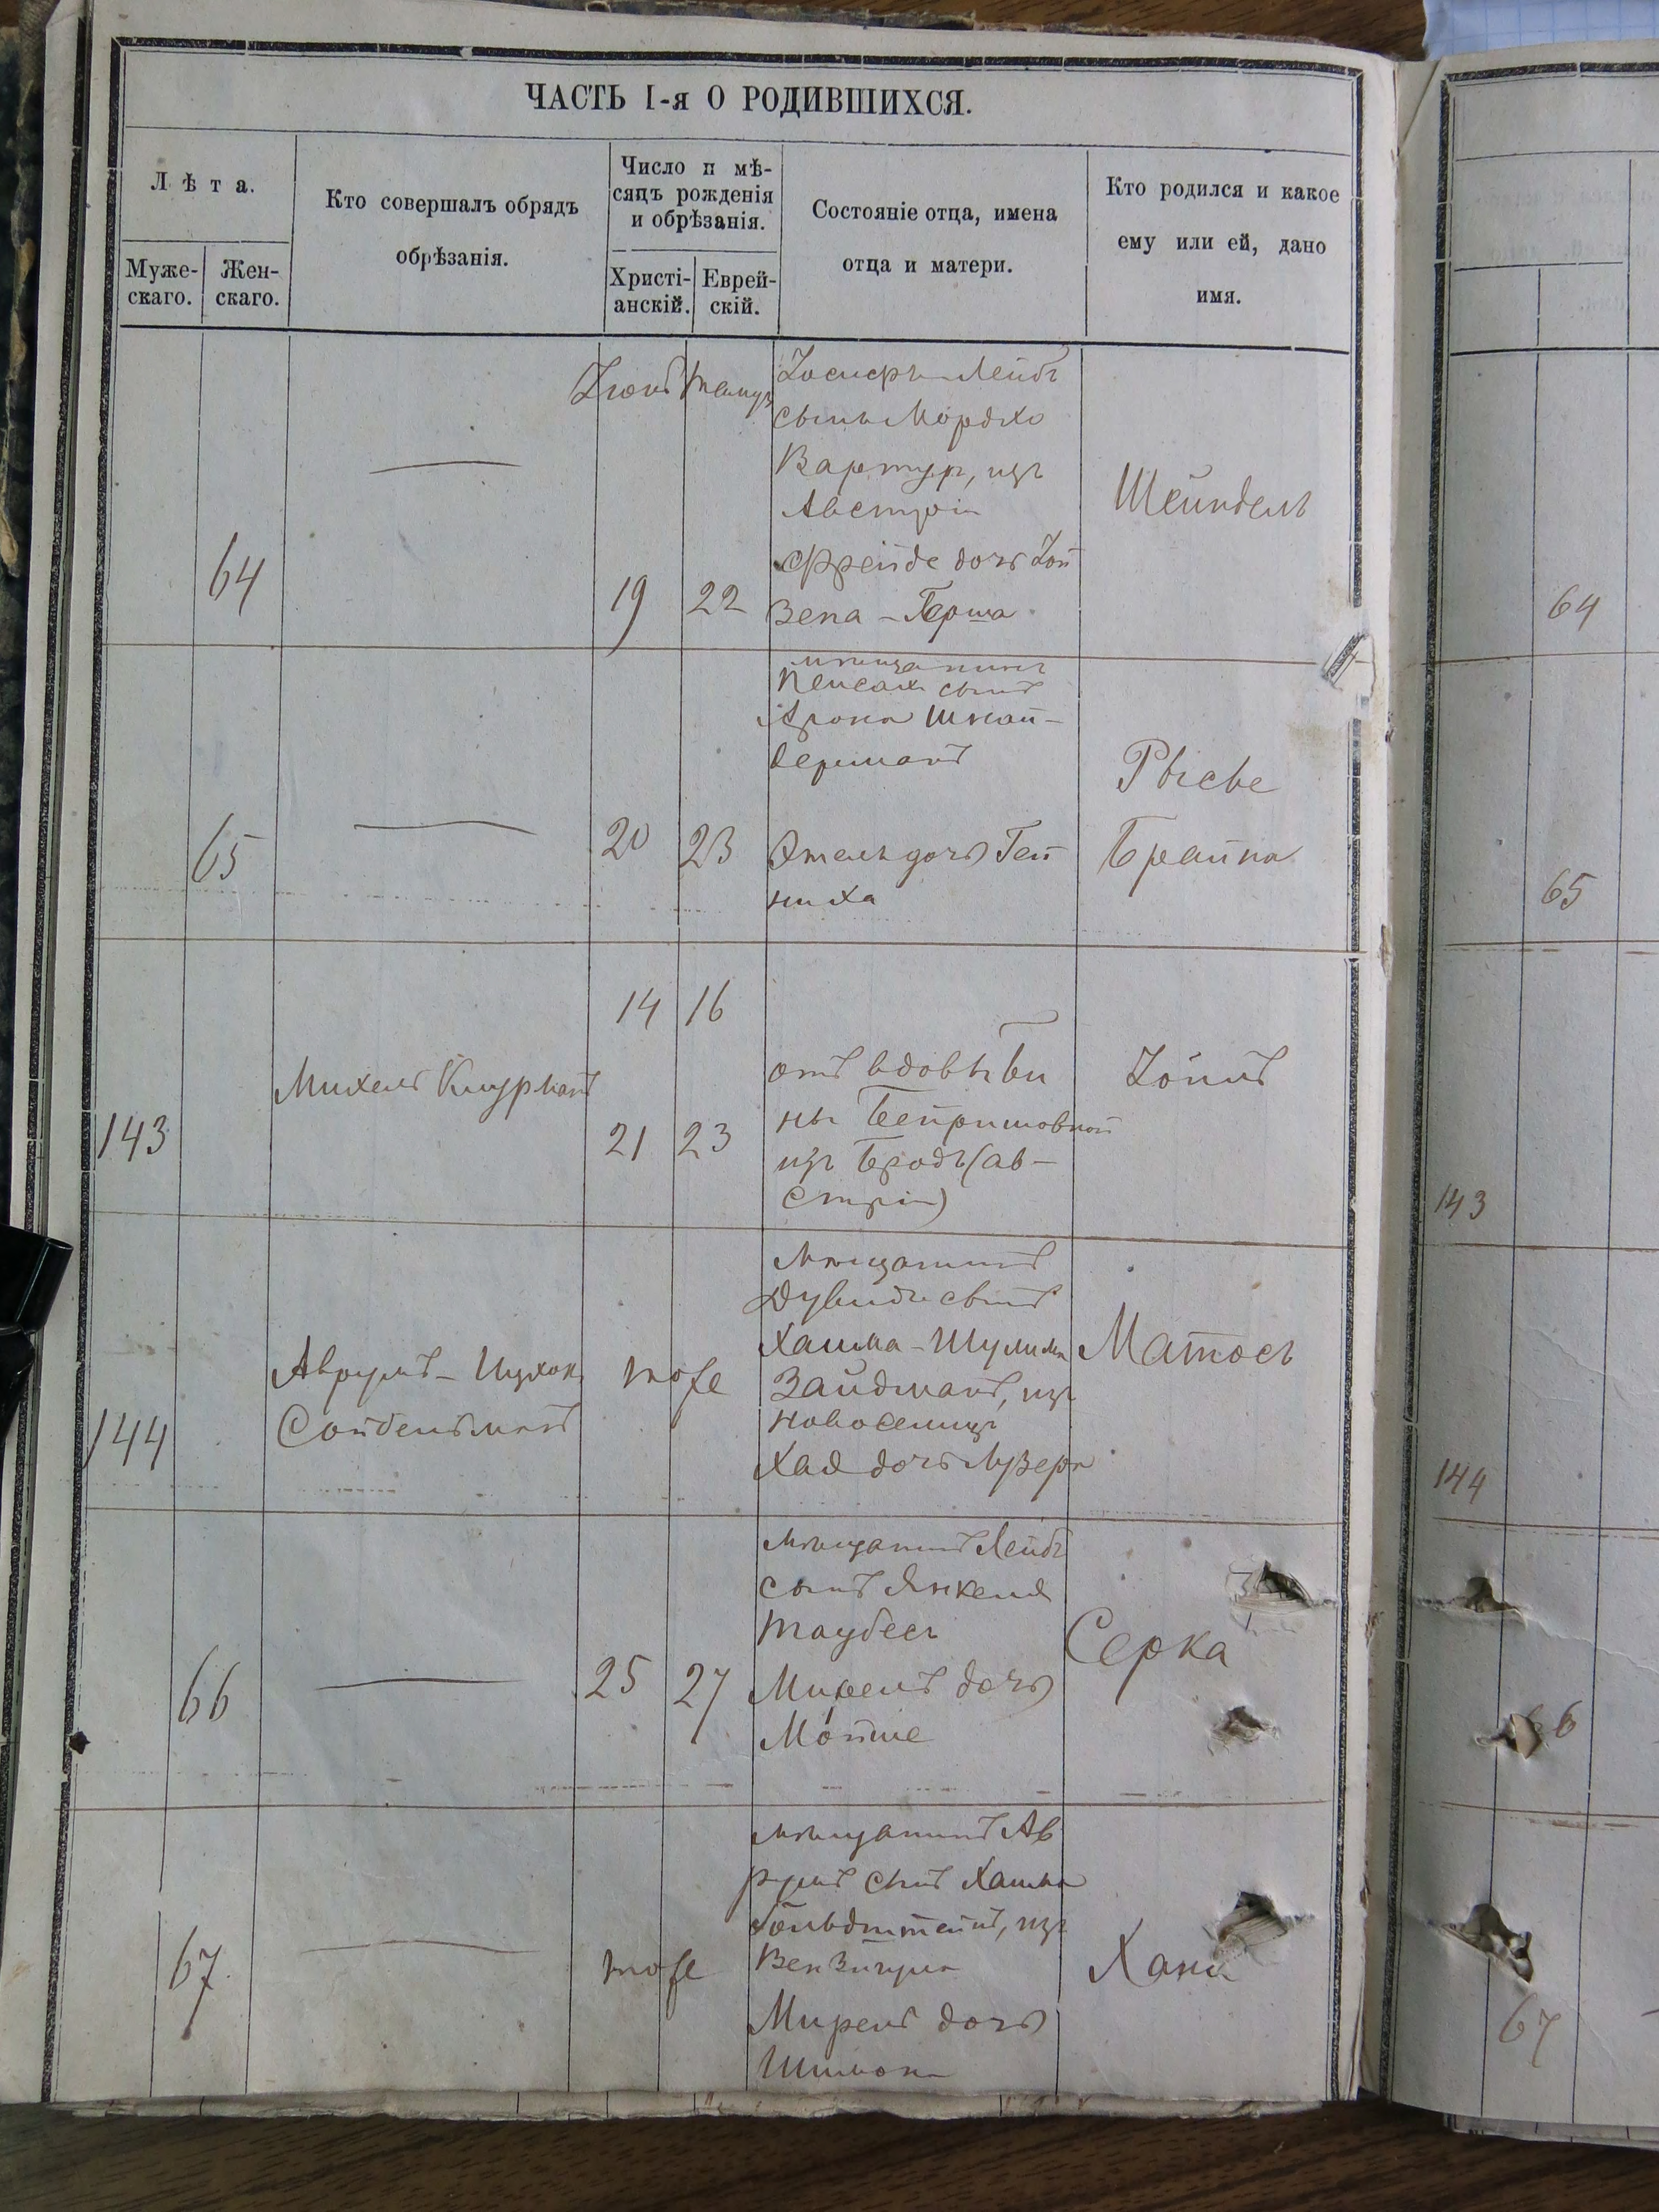 ЧАСТЬ I-я О РОДИВШИХСЯ.
Лѣта.
Муже-
скаго.
Жен-
скаго.
Кто совершалъ обрядъ
обрѣзанія.
Число и мѣ-
сяцъ рожденія
и обрѣзанія.
Христі-
анскій.
Еврей-
скій.
Состояніе отца, имена
отца и матери.
Кто родился и какое
ему или ей, дано
имя.
64
—
Іюнь
19
Тамузъ
22
Іосифъ-Лейбъ
сынъ Мордхо
Вартур, изъ
Австріи
Фрейде дочь
Герша
Шейндель
65
—
20
23
мѣщанинъ
Пейсахъ сынъ
Арона Шнай-
дерманъ
Этель дочь Гей
ниха
Рысье
Брайна
143
Михель
14
16
21
23
отъ вдовы Би
ны
изъ Бродъ (Ав-
стріи)
144
Аврумъ-Ицхокъ
тоже
мѣщанинъ
Дувидъ сынъ
Хаима-Шулима
Зайдманъ, изъ
Новоселицъ
Хая дочь Лузера
Матесъ
66
—
25
27
мѣщанинъ Лейбъ
сынъ Янкеля
Таубесъ
дочь
Мойше
Серка
67
—
тоже
мѣщанинъ Ав
румъ сынъ Хаима
Гольдштейнъ, изъ
Мирель дочь
Шимона
Хана
64
65
143
144
66
67